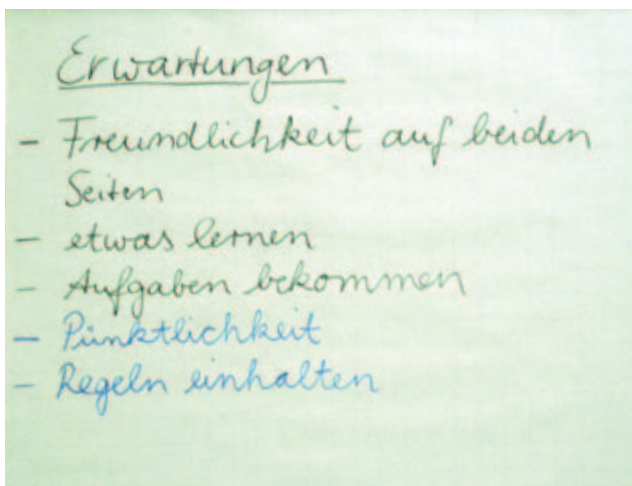 Erwartungen
- Freundlichkeit auf beiden
Seiten
- etwas lernen
- Aufgaben bekommen
- Pünktlichkeit
- Regeln einhalten